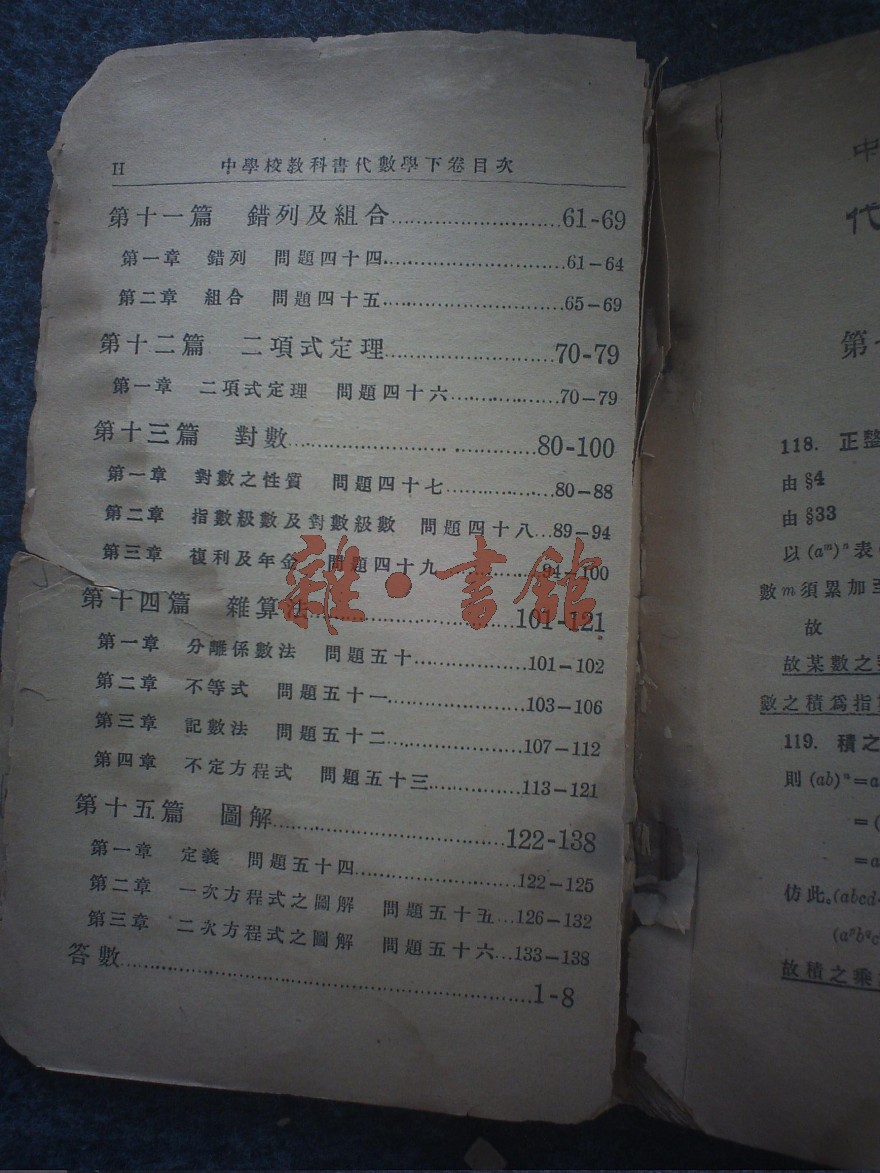 II 中學校教科書代數學下卷目次
第十一篇 錯列及組合..............61-69
第一章 錯列 問題四十四..............61—64
第二章 組合 問題四十五..............65—69
第十二篇 二項式定理..............70-79
第一章 二項式定理 問題四十六..............70—79
第十三篇 對數..............80-100
第一章 對數之性質 問題四十七..............80—88
第二章 指數級數及對數級數 問題四十八...89—94
第三章 複利及年金 問題四十九..............94—100
雜·書館
第十四篇 雜算法..............101-121
第一章 分離係數法 問題五十..............101—102
第二章 不等式 問題五十一..............103—106
第三章 記數法 問題五十二..............107—112
第四章 不定方程式 問題五十三..............113—121
第十五篇 圖解..............122-138
第一章 定義 問題五十四..............122—125
第二章 一次方程式之圖解 問題五十五...126—132
第三章 二次方程式之圖解 問題五十六...133—138
答數..............1-8
中
代
第
118. 正整
由 §4
由 §33
以 (aᵐ)ⁿ 表
數 m 須累加至
故
故某數之
數之積爲指
119. 積之
則 (ab)ⁿ=a
=(
=a
仿此。(abcd
(aᵖbᵠc
故積之乘